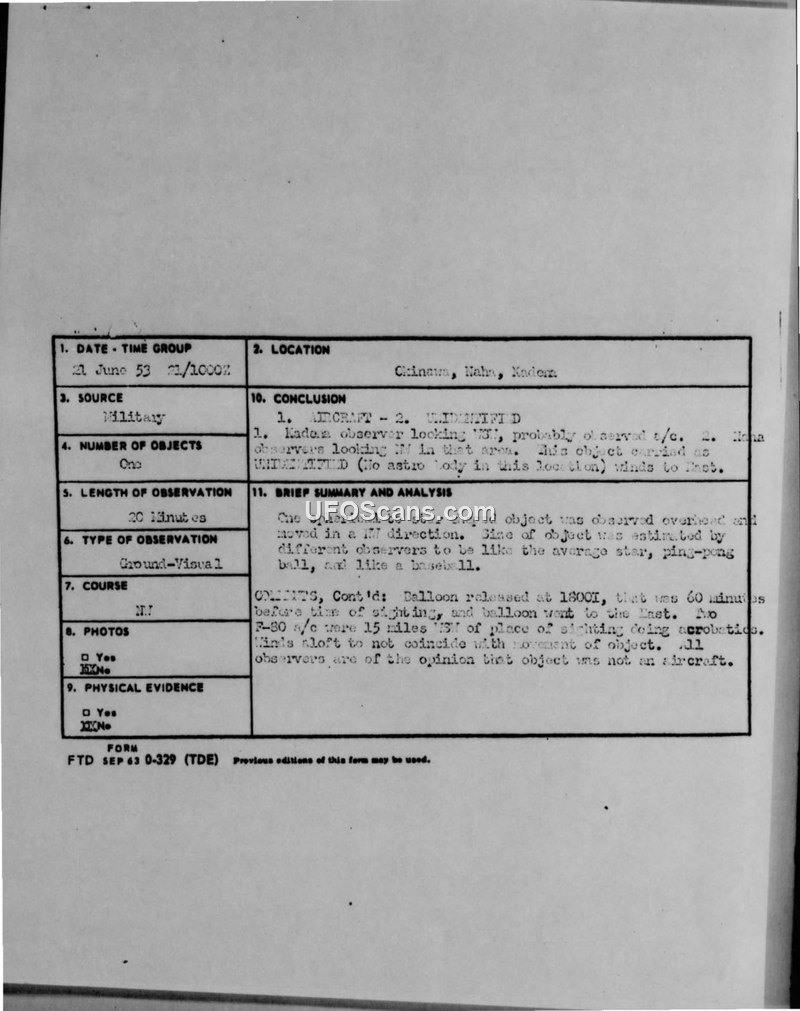 1. DATE - TIME GROUP
21 June 53 21/1000Z
2. LOCATION
Okinawa, Naha, Kadena
3. SOURCE
Military
10. CONCLUSION
1. AIRCRAFT - 2. UNIDENTIFIED
1. Kadena observer looking WSW, probably observed a/c. 2. Naha
observers looking NW in that area. This object carried as
UNIDENTIFIED (No astro body in this location) winds to East.
4. NUMBER OF OBJECTS
One
5. LENGTH OF OBSERVATION
20 Minutes
11. BRIEF SUMMARY AND ANALYSIS
One object was observed overhead and
moved in a NW direction. Size of object was estimated by
different observers to be like the average star, ping-pong
ball, and like a baseball.
COMMENTS, Cont'd: Balloon released at 1800I, that was 60 minutes
before time of sighting, and balloon went to the East. Two
F-80 a/c were 15 miles WSW of place of sighting doing acrobatics.
Winds aloft to not coincide with movement of object. All
observers are of the opinion that object was not an aircraft.
6. TYPE OF OBSERVATION
Ground-Visual
7. COURSE
NW
8. PHOTOS
□ Yes
XXNo
9. PHYSICAL EVIDENCE
□ Yes
XXNo
FORM
FTD SEP 63 0-329 (TDE) Previous editions of this form may be used.
UFOScans.com